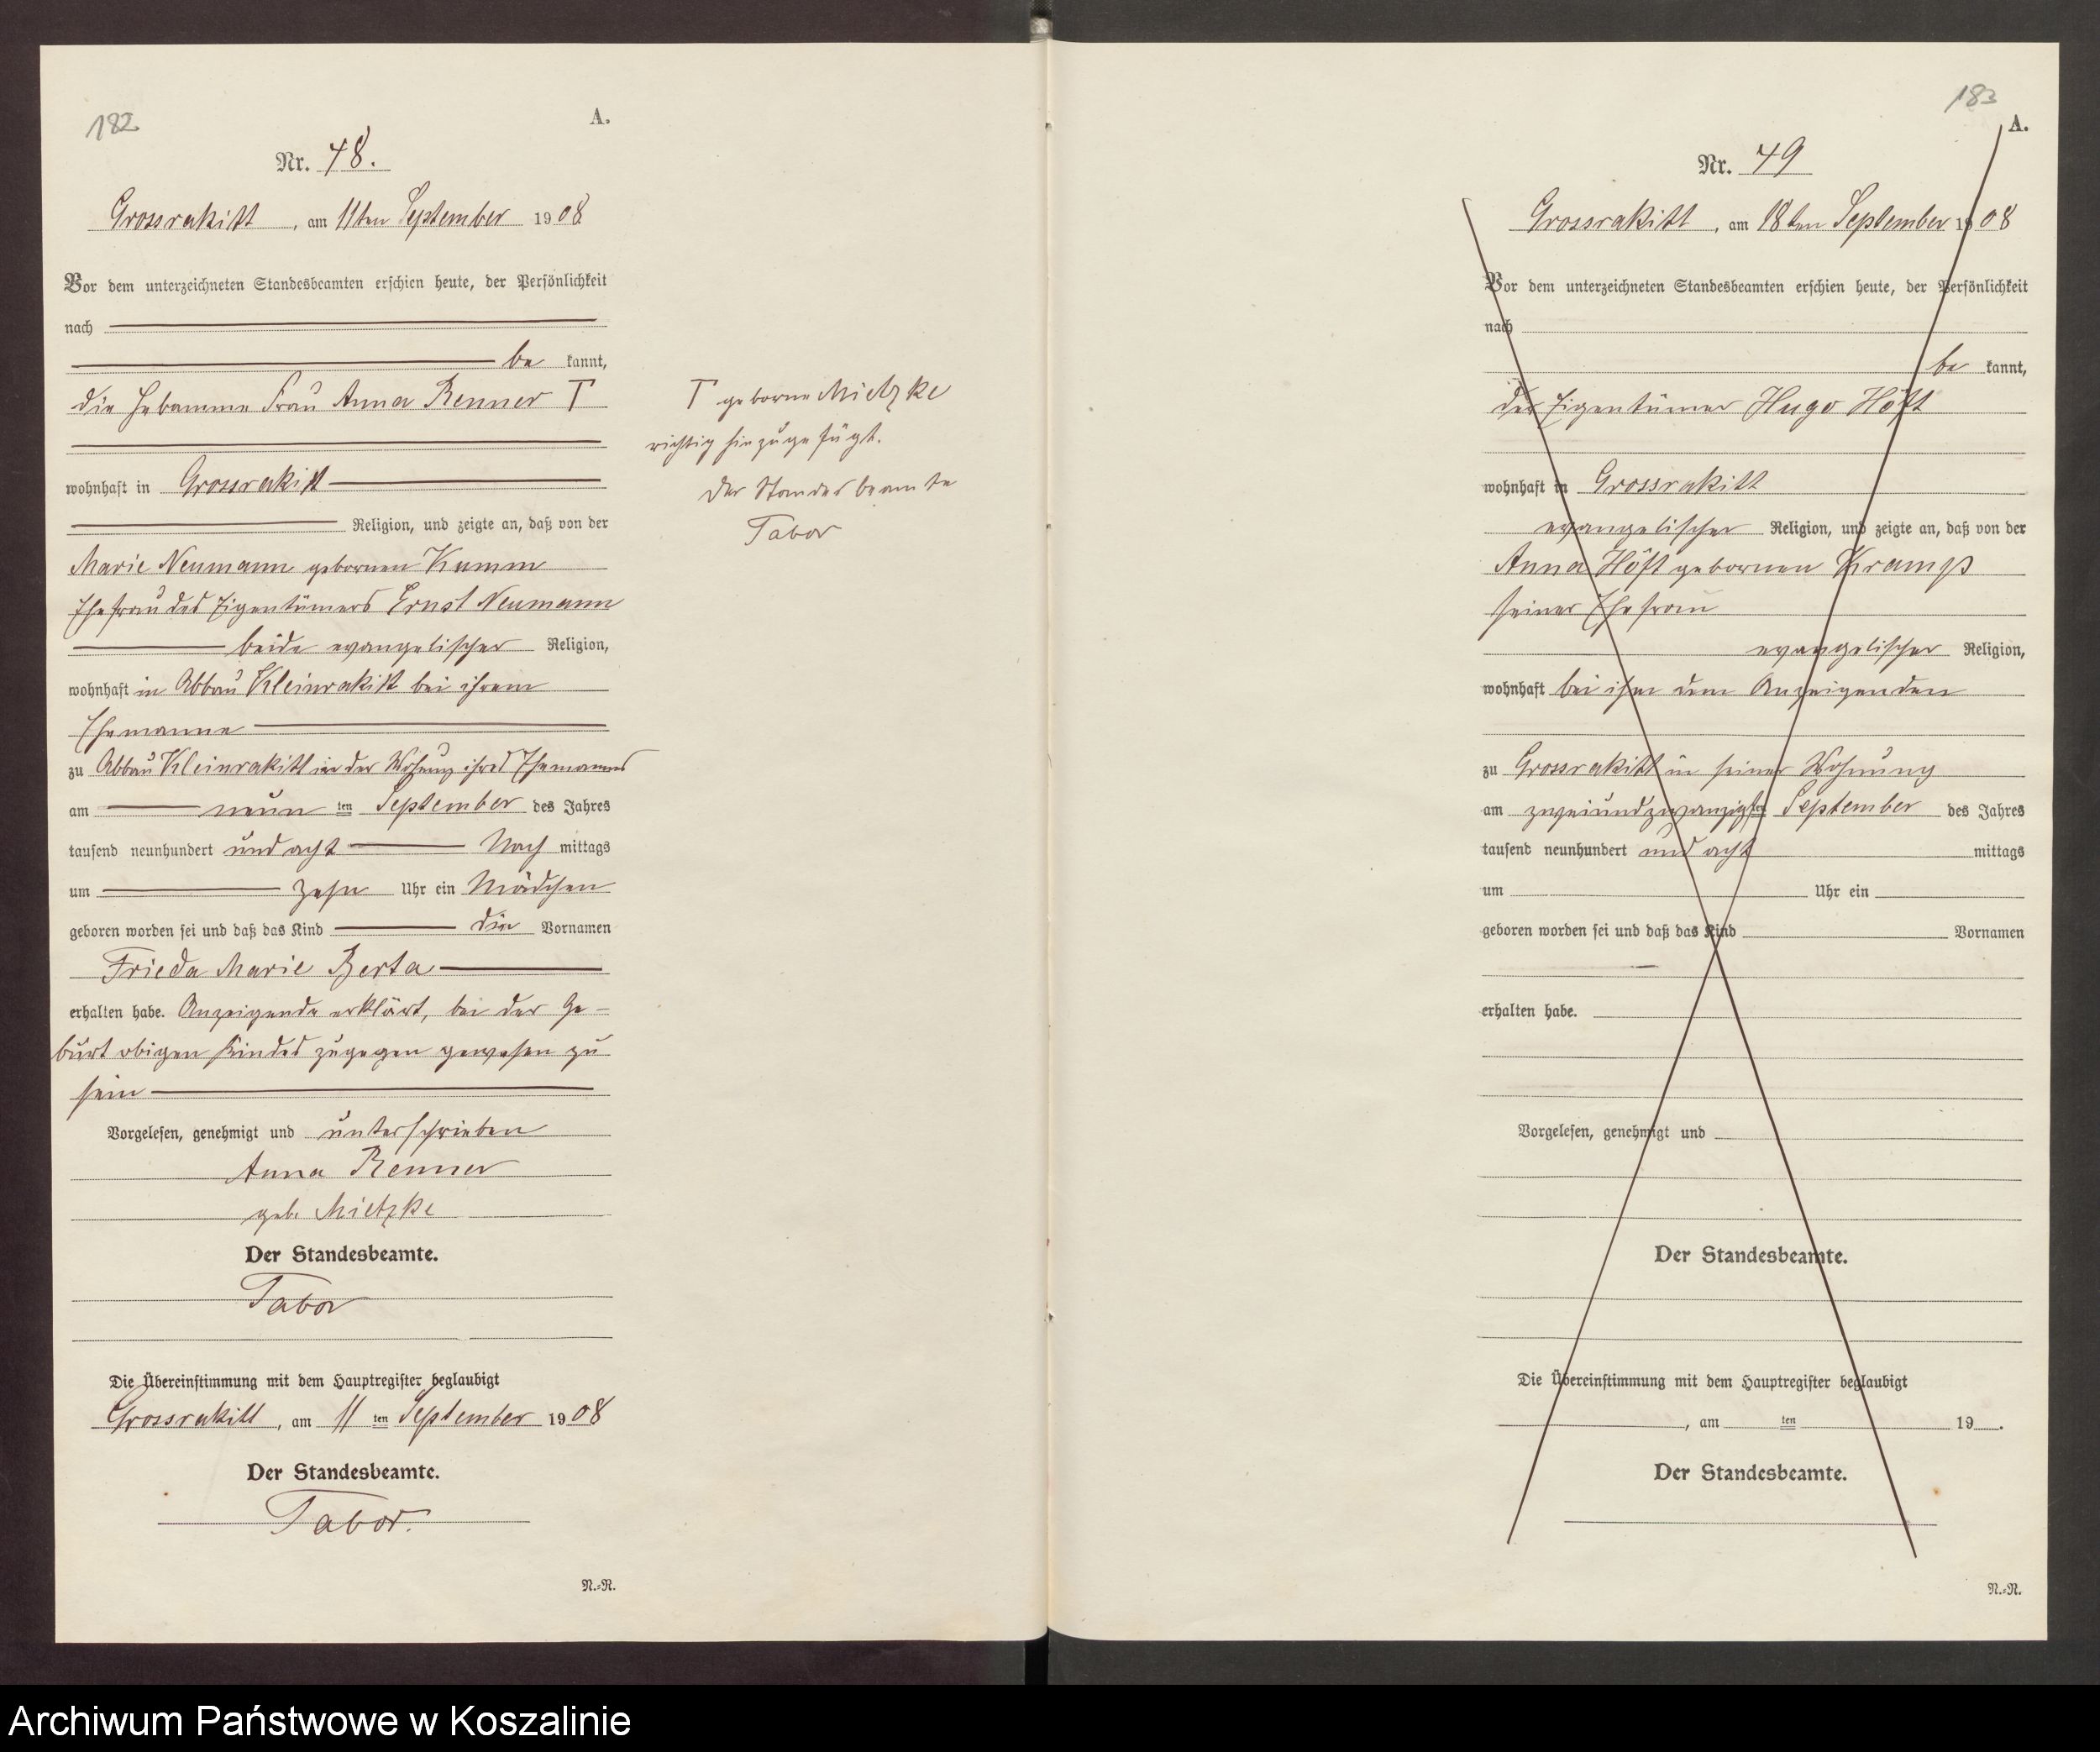 182
A.
Nr. 48.
Grossrakitt, am 11ten September 1908
Vor dem unterzeichneten Standesbeamten erschien heute, der Persönlichkeit
nach
be kannt,
die Hebamme Frau Anna Renner T
wohnhaft in Grossrakitt
Religion, und zeigte an, daß von der
Marie Neumann gebornen Kumm
Ehefrau des Eigentümers Ernst Neumann
beide evangelischer Religion,
wohnhaft in Abbau Kleinrakitt bei ihrem
Ehemanne
zu Abbau Kleinrakitt in der Wohnung ihres Ehemannes
am neun ten September des Jahres
tausend neunhundert und acht Nach mittags
um zehn Uhr ein Mädchen
geboren worden sei und daß das Kind die Vornamen
Frieda Marie Berta
erhalten habe. Anzeigende erklärt, bei der Ge-
burt obigen Kindes zugegen gewesen zu
sein
Vorgelesen, genehmigt und unterschrieben
Anna Renner
geb. Mietzke
Der Standesbeamte.
Tabor
Die Übereinstimmung mit dem Hauptregister beglaubigt
Grossrakitt, am 11 ten September 1908
Der Standesbeamte.
Tabor.
N.-R.
T geborne Mietzke
richtig hinzugefügt.
Der Standesbeamte
Tabor
183
A.
Nr. 49
Grossrakitt, am 18ten September 1908
Vor dem unterzeichneten Standesbeamten erschien heute, der Persönlichkeit
nach
be kannt,
der Eigentümer Hugo Höft
wohnhaft in Grossrakitt
evangelischer Religion, und zeigte an, daß von der
Anna Höft gebornen Kramp
seiner Ehefrau
evangelischer Religion,
wohnhaft bei ihm dem Anzeigenden
zu Grossrakitt in seiner Wohnung
am zweiundzwanzigsten September des Jahres
tausend neunhundert und acht mittags
um Uhr ein
geboren worden sei und daß das Kind Vornamen
erhalten habe.
Vorgelesen, genehmigt und
Der Standesbeamte.
Die Übereinstimmung mit dem Hauptregister beglaubigt
, am ten 19 .
Der Standesbeamte.
N.-R.
Archiwum Państwowe w Koszalinie